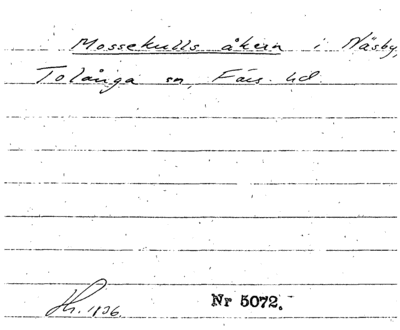 Mossekulls åkern i Näsby,
Tolånga sn, Färs hd.
1936.
Nr 5072.